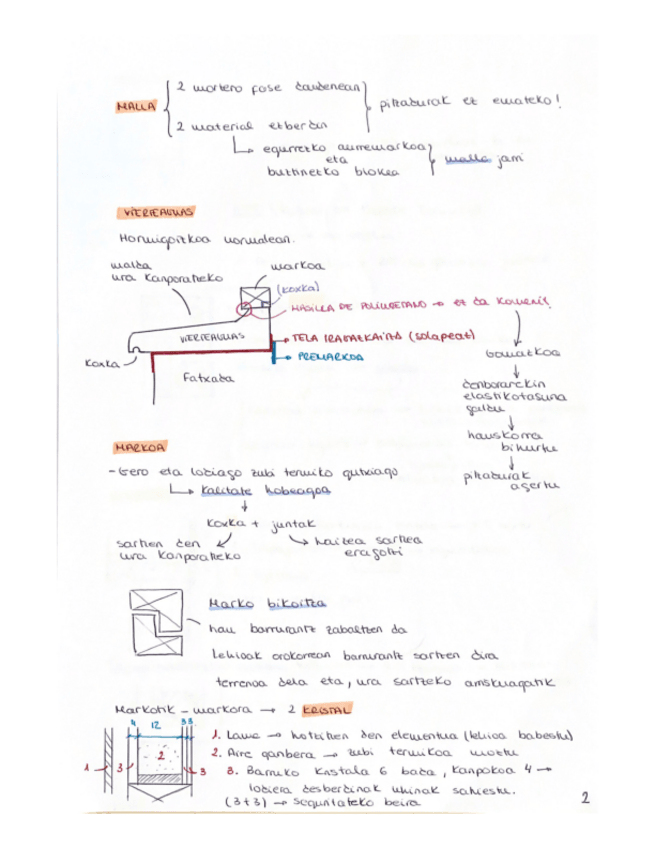 MALLA
2 mortero fase daudenean
pitzadurak ez emateko!
2 material ezberdin
↳ egurrezko aurremarkoa
eta
buthnetko blokea
malla jarri
VIERTEAGUAS
Hormigoizkoa normalean.
malda
ura kanporatzeko
markoa
(koxka)
MASILLA DE POLIURETANO → ez da komeni!
VIERTEAGUAS
TELA IRAGAZKAITZA (solapeat)
PREMARKOA
Koxka
Fatxada
bomatkoa
↓
denborarekin
elastikotasuna
galdu
↓
hauskorra
bihurtu
↓
pitzadurak
agertu
MARKOA
- Gero eta lodiago zubi termiko gutxiago
↳ Kalitate hobeagoa
↓
Koxka + juntak
sartzen den
ura kanporatzeko
haizea sartzea
eragotzi
Marko bikoitza
hau barrurantz zabaltzen da
Lehioak orokorrean barrurantz sartzen dira
terrenoa dela eta, ura sartzeko arriskuagatik
Markotik - markora → 2 KRISTAL
4 12 3 3
1 3 2 3
1. Lama → hoztitzen den elementua (lehioa babestu)
2. Aire ganbera → zubi termikoa moztu
3. Barruko kristala 6 bada, kanpokoa 4 →
lodiera desberdinak uhinak sahiestu.
(3+3) → seguritateko beira
2